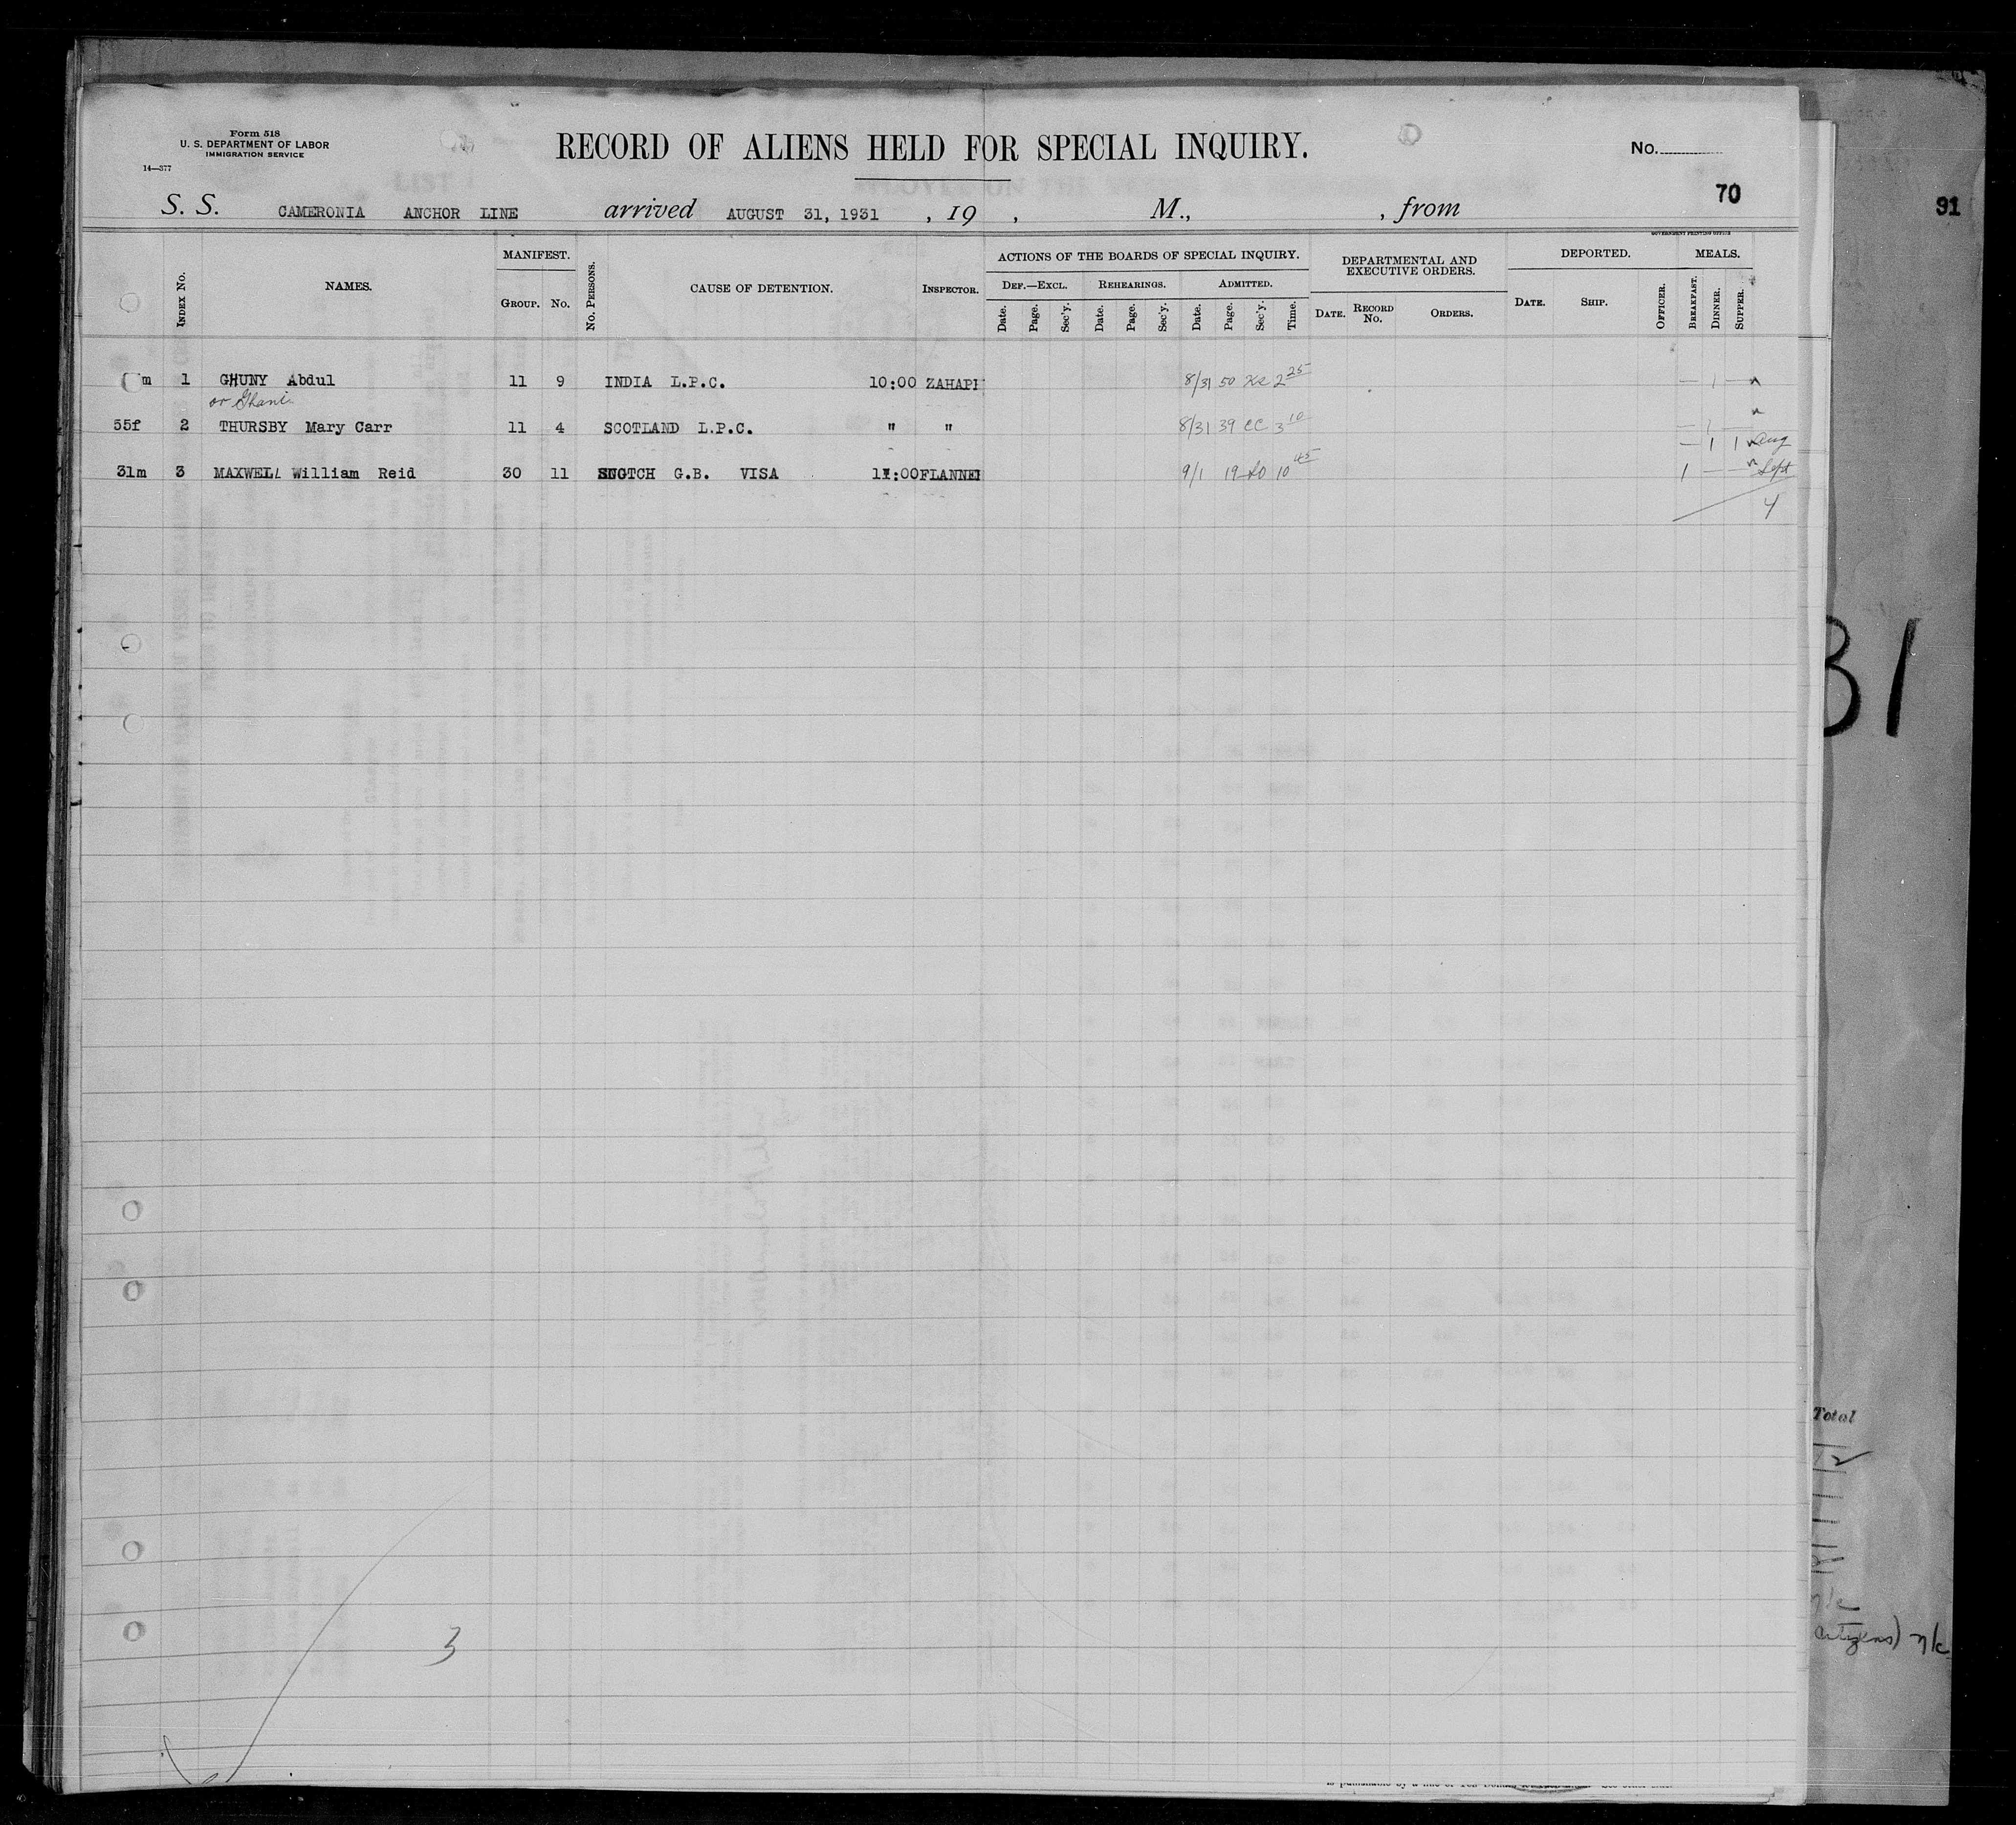 Form 518
U. S. DEPARTMENT OF LABOR
IMMIGRATION SERVICE
14—377
RECORD OF ALIENS HELD FOR SPECIAL INQUIRY.
No.
70
91
S. S. CAMERONIA ANCHOR LINE arrived AUGUST 31, 1931 , 19 , M., , from
GOVERNMENT PRINTING OFFICE
INDEX NO. NAMES. MANIFEST. GROUP. NO. NO. PERSONS. CAUSE OF DETENTION. INSPECTOR. ACTIONS OF THE BOARDS OF SPECIAL INQUIRY. DEPARTMENTAL AND EXECUTIVE ORDERS. DEPORTED. MEALS.
DEF.—EXCL. REHEARINGS. ADMITTED.
Date. Page. Sec'y. Date. Page. Sec'y. Date. Page. Sec'y. Time. DATE. RECORD No. ORDERS. DATE. SHIP. OFFICER. BREAKFAST. DINNER. SUPPER.
m 1 GHUNY Abdul 11 9 INDIA L.P.C. 10:00 ZAHAPI 8/31 50 2 25 — 1 —
or Ghani
55f 2 THURSBY Mary Carr 11 4 SCOTLAND L.P.C. " " 8/31 39 CC 3 10 — 1 —
— 1 1 Aug
31m 3 MAXWELL William Reid 30 11 SCOTCH G.B. VISA 11:00 FLANNE 9/1 19 10 45 1 — — Sept
4
31
Total
12
citizens) n/c
3